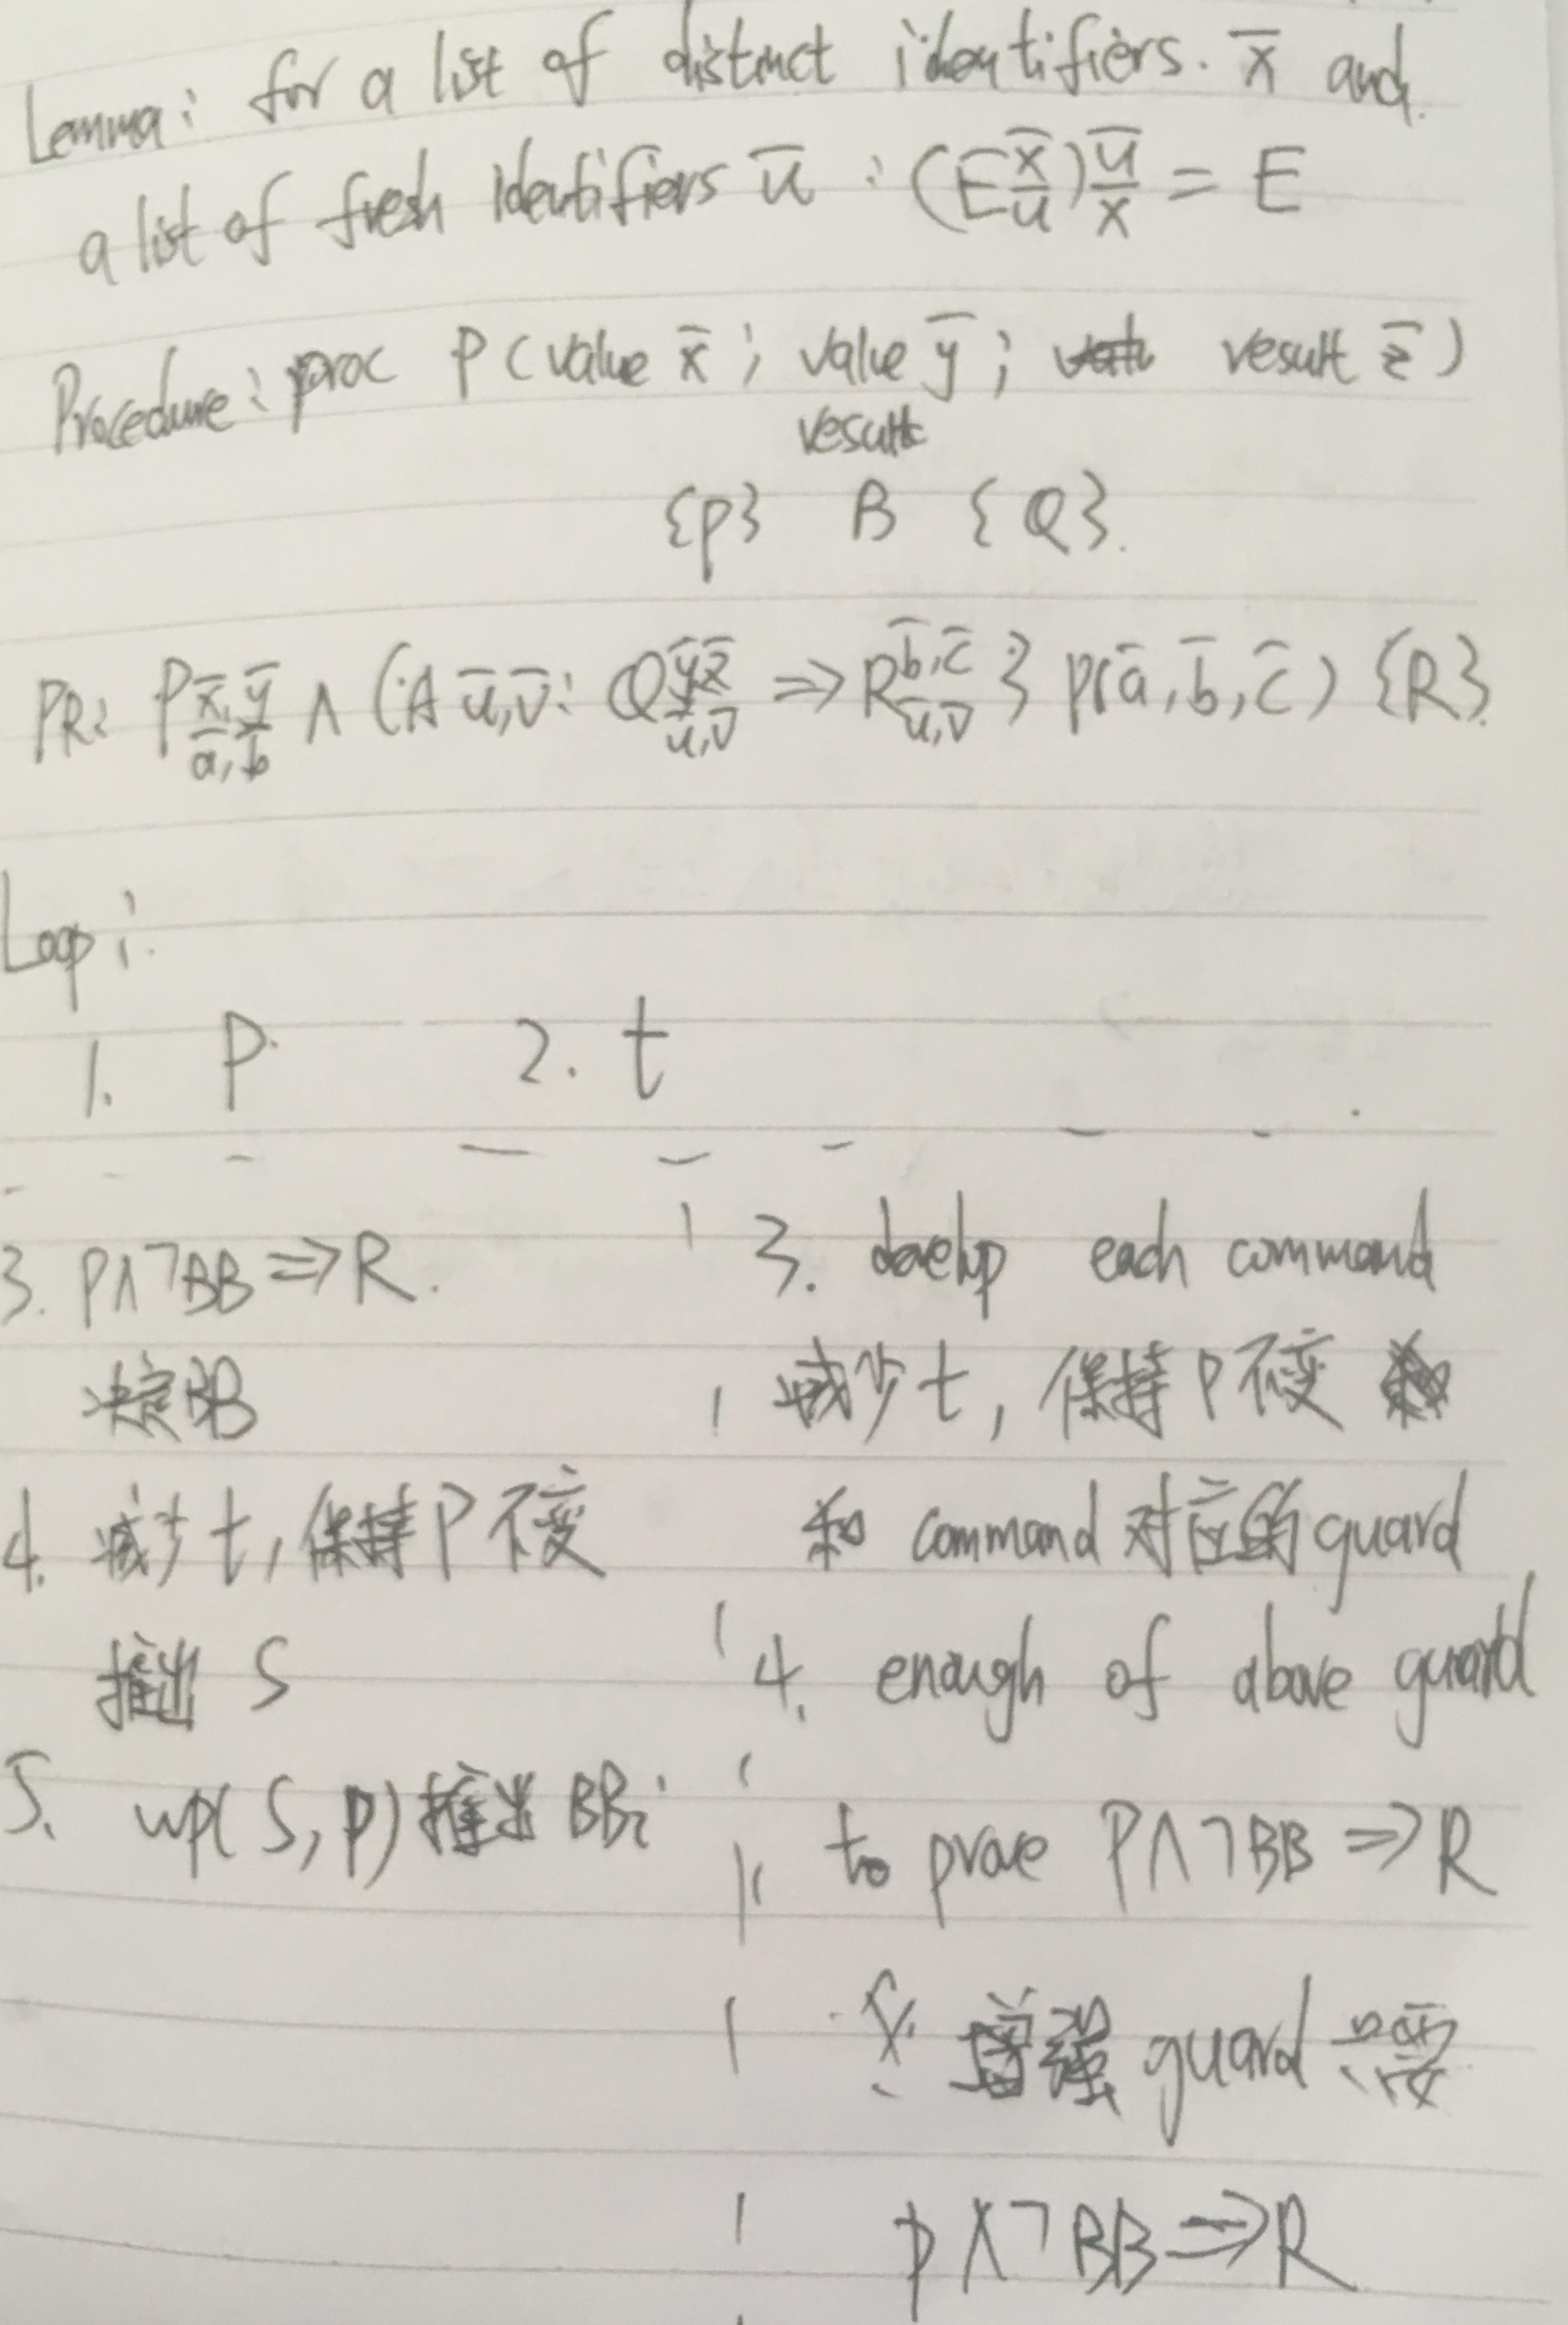 Lemma: for a list of distinct identifiers. x̄ and
a list of fresh identifiers ū : (E x̄/ū) ū/x̄ = E
Procedure: proc P(value x̄; value ȳ; result z̄)
result
{P} B {Q}.
PR: P x̄,ȳ/ā,b̄ ∧ (A ū,v̄: Q ȳ,z̄/ū,v̄ ⇒ R b̄,c̄/ū,v̄ } p(ā,b̄,c̄) {R}
Loop:
1. P 2. t
3. P∧¬BB⇒R.
决定BB
4. 减少t,保持P不变
推出 S
5. wp(S,P)推出BBi
3. develop each command
减少t,保持P不变
和 command 对应的guard
4. enough of above guard
to prove P∧¬BB⇒R
增强guard 只需
P∧¬BB⇒R